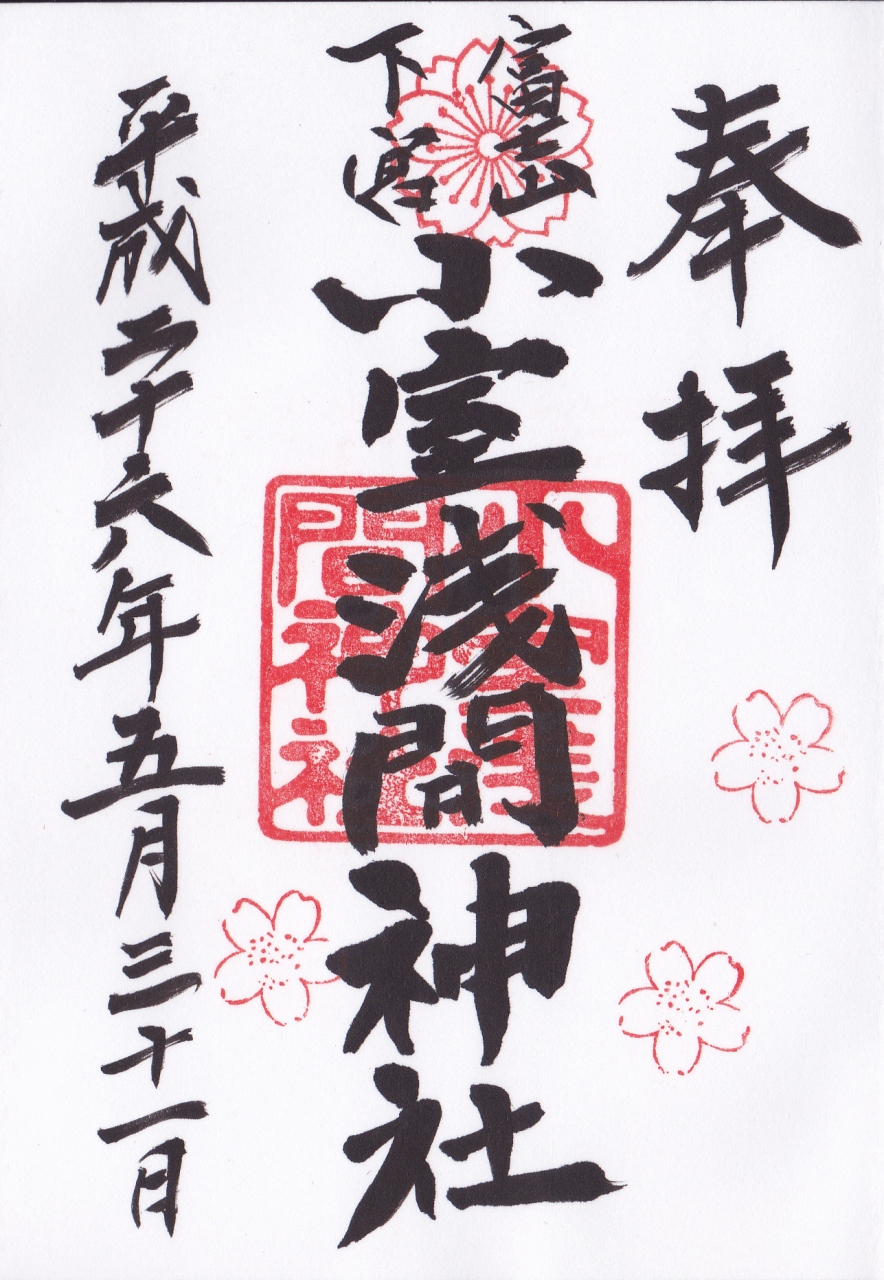 奉拝
富士山
下宮
小室浅間神社
小室浅間神社
平成二十六年五月三十一日